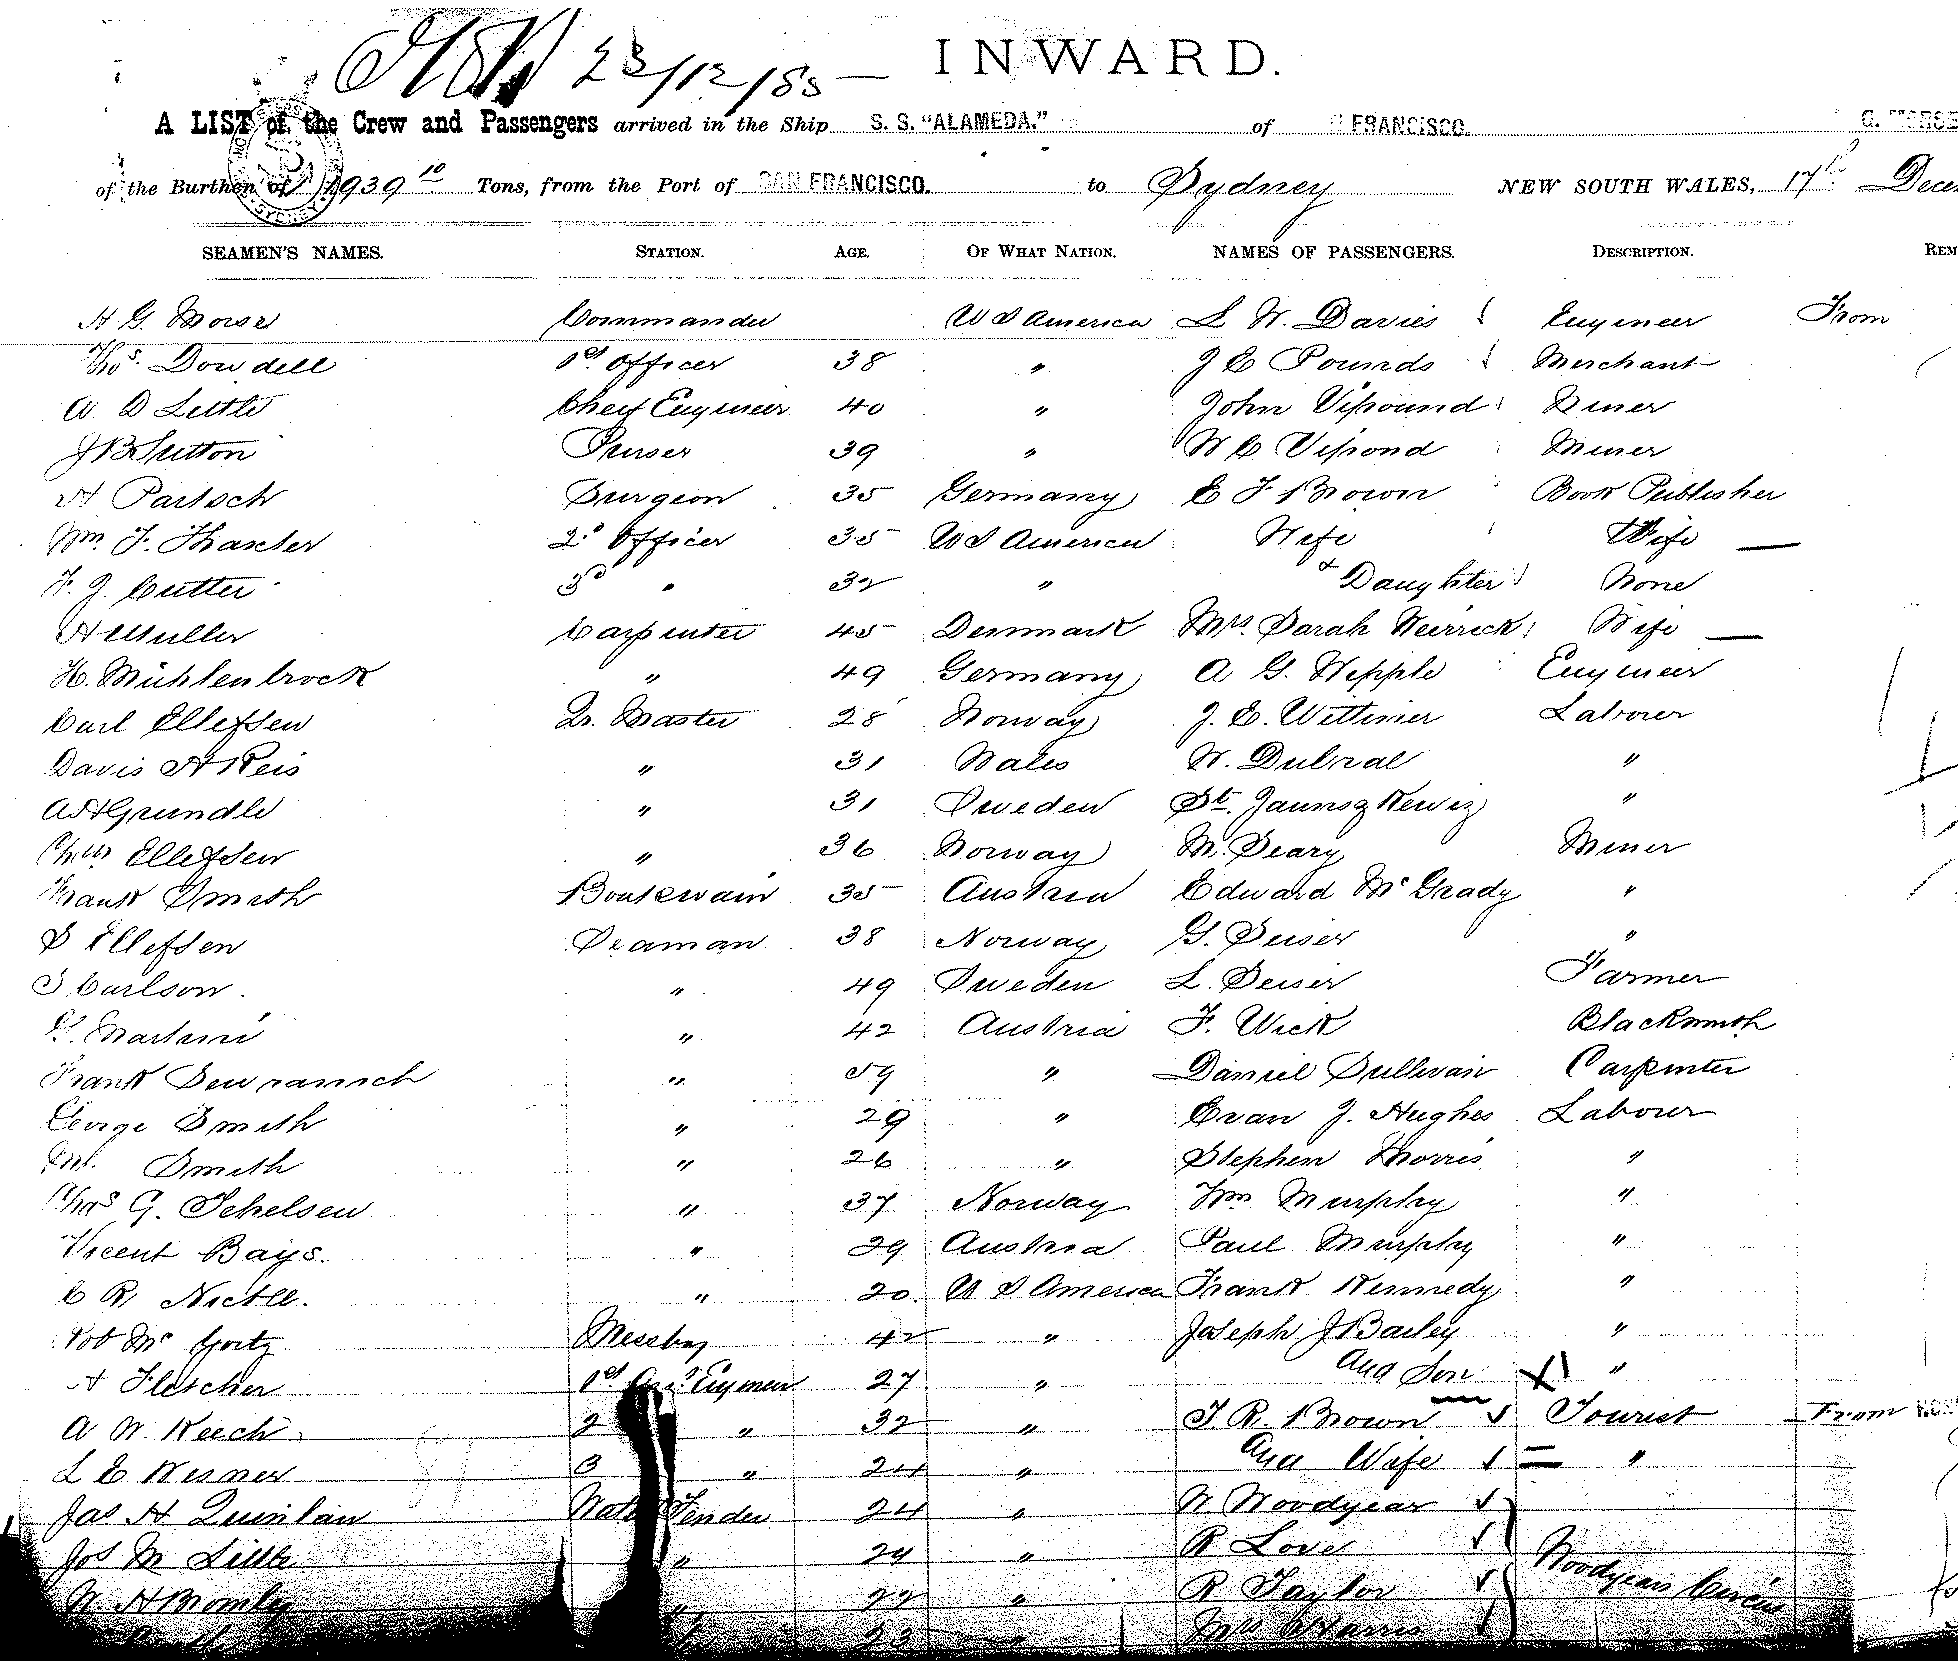 23/12/85 — INWARD.
A LIST of the Crew and Passengers arrived in the Ship S. S. "ALAMEDA." of FRANCISCO.
of the Burthen of 1939 10 Tons, from the Port of SAN FRANCISCO. to Sydney NEW SOUTH WALES, 17th
SEAMEN'S NAMES. STATION. AGE. OF WHAT NATION. NAMES OF PASSENGERS. DESCRIPTION.
H G Morse Commander U S America L W. Davies Engineer From
Thos Dowdell 1st Officer 38 " J E Pounds Merchant
A D Little Cheif Engineer 40 " John Vipound Miner
J B Sutton Purser 39 " W C Vipond Miner
H Partsch Surgeon 35 Germany E F Brown Book Publisher
Wm. F. Thaxter 2d Officer 35 U S America Wife Wife —
F. J. Cutter 3rd " 32 " & Daughter None
H Muller Carpenter 45 Denmark Mrs. Sarah Weirrick Wife —
H. Mühlenbrock " 49 Germany A G. Wepple Engineer
Carl Ellefsen Qr. Master 28 Norway J. E. Wittimer Labourer
Davis A Reis " 31 Wales W. Dubral "
A H Grundle " 31 Sweden St. "
Ellefsen " 36 Norway M. Seary Miner
Frank Smith Boatswain 35 Austria Edward McGrady "
S Ellefsen Seaman 38 Norway G. Seiser "
J Carlson. " 49 Sweden L. Seiser Farmer
Martini " 42 Austria F. Wick Blacksmith
Frank " 59 " Daniel Sullivan Carpenter
George Smith " 29 " Evan J. Hughes Labourer
Smith " 26 " Stephen Morris "
Chas G. " 37 Norway Wm Murphy "
Vicent Bays. " 29 Austria Paul Murphy "
C R. " 20 U S America Frank Kennedy "
Rob Mc Messboy 42 " Joseph J Bailey "
A Fletcher 1st Engineer 27 " And Son "
A W. Keech 2 " 32 " J. R. Brown Tourist From
L E Wesner 3 " 24 " And Wife "
Jas H Quinlan Water Tender 24 " W Woodyear
Jos M Little " 24 " R Love Woodyears Circus
W H Bromley " 22 " R Taylor
23 " Mrs Harris